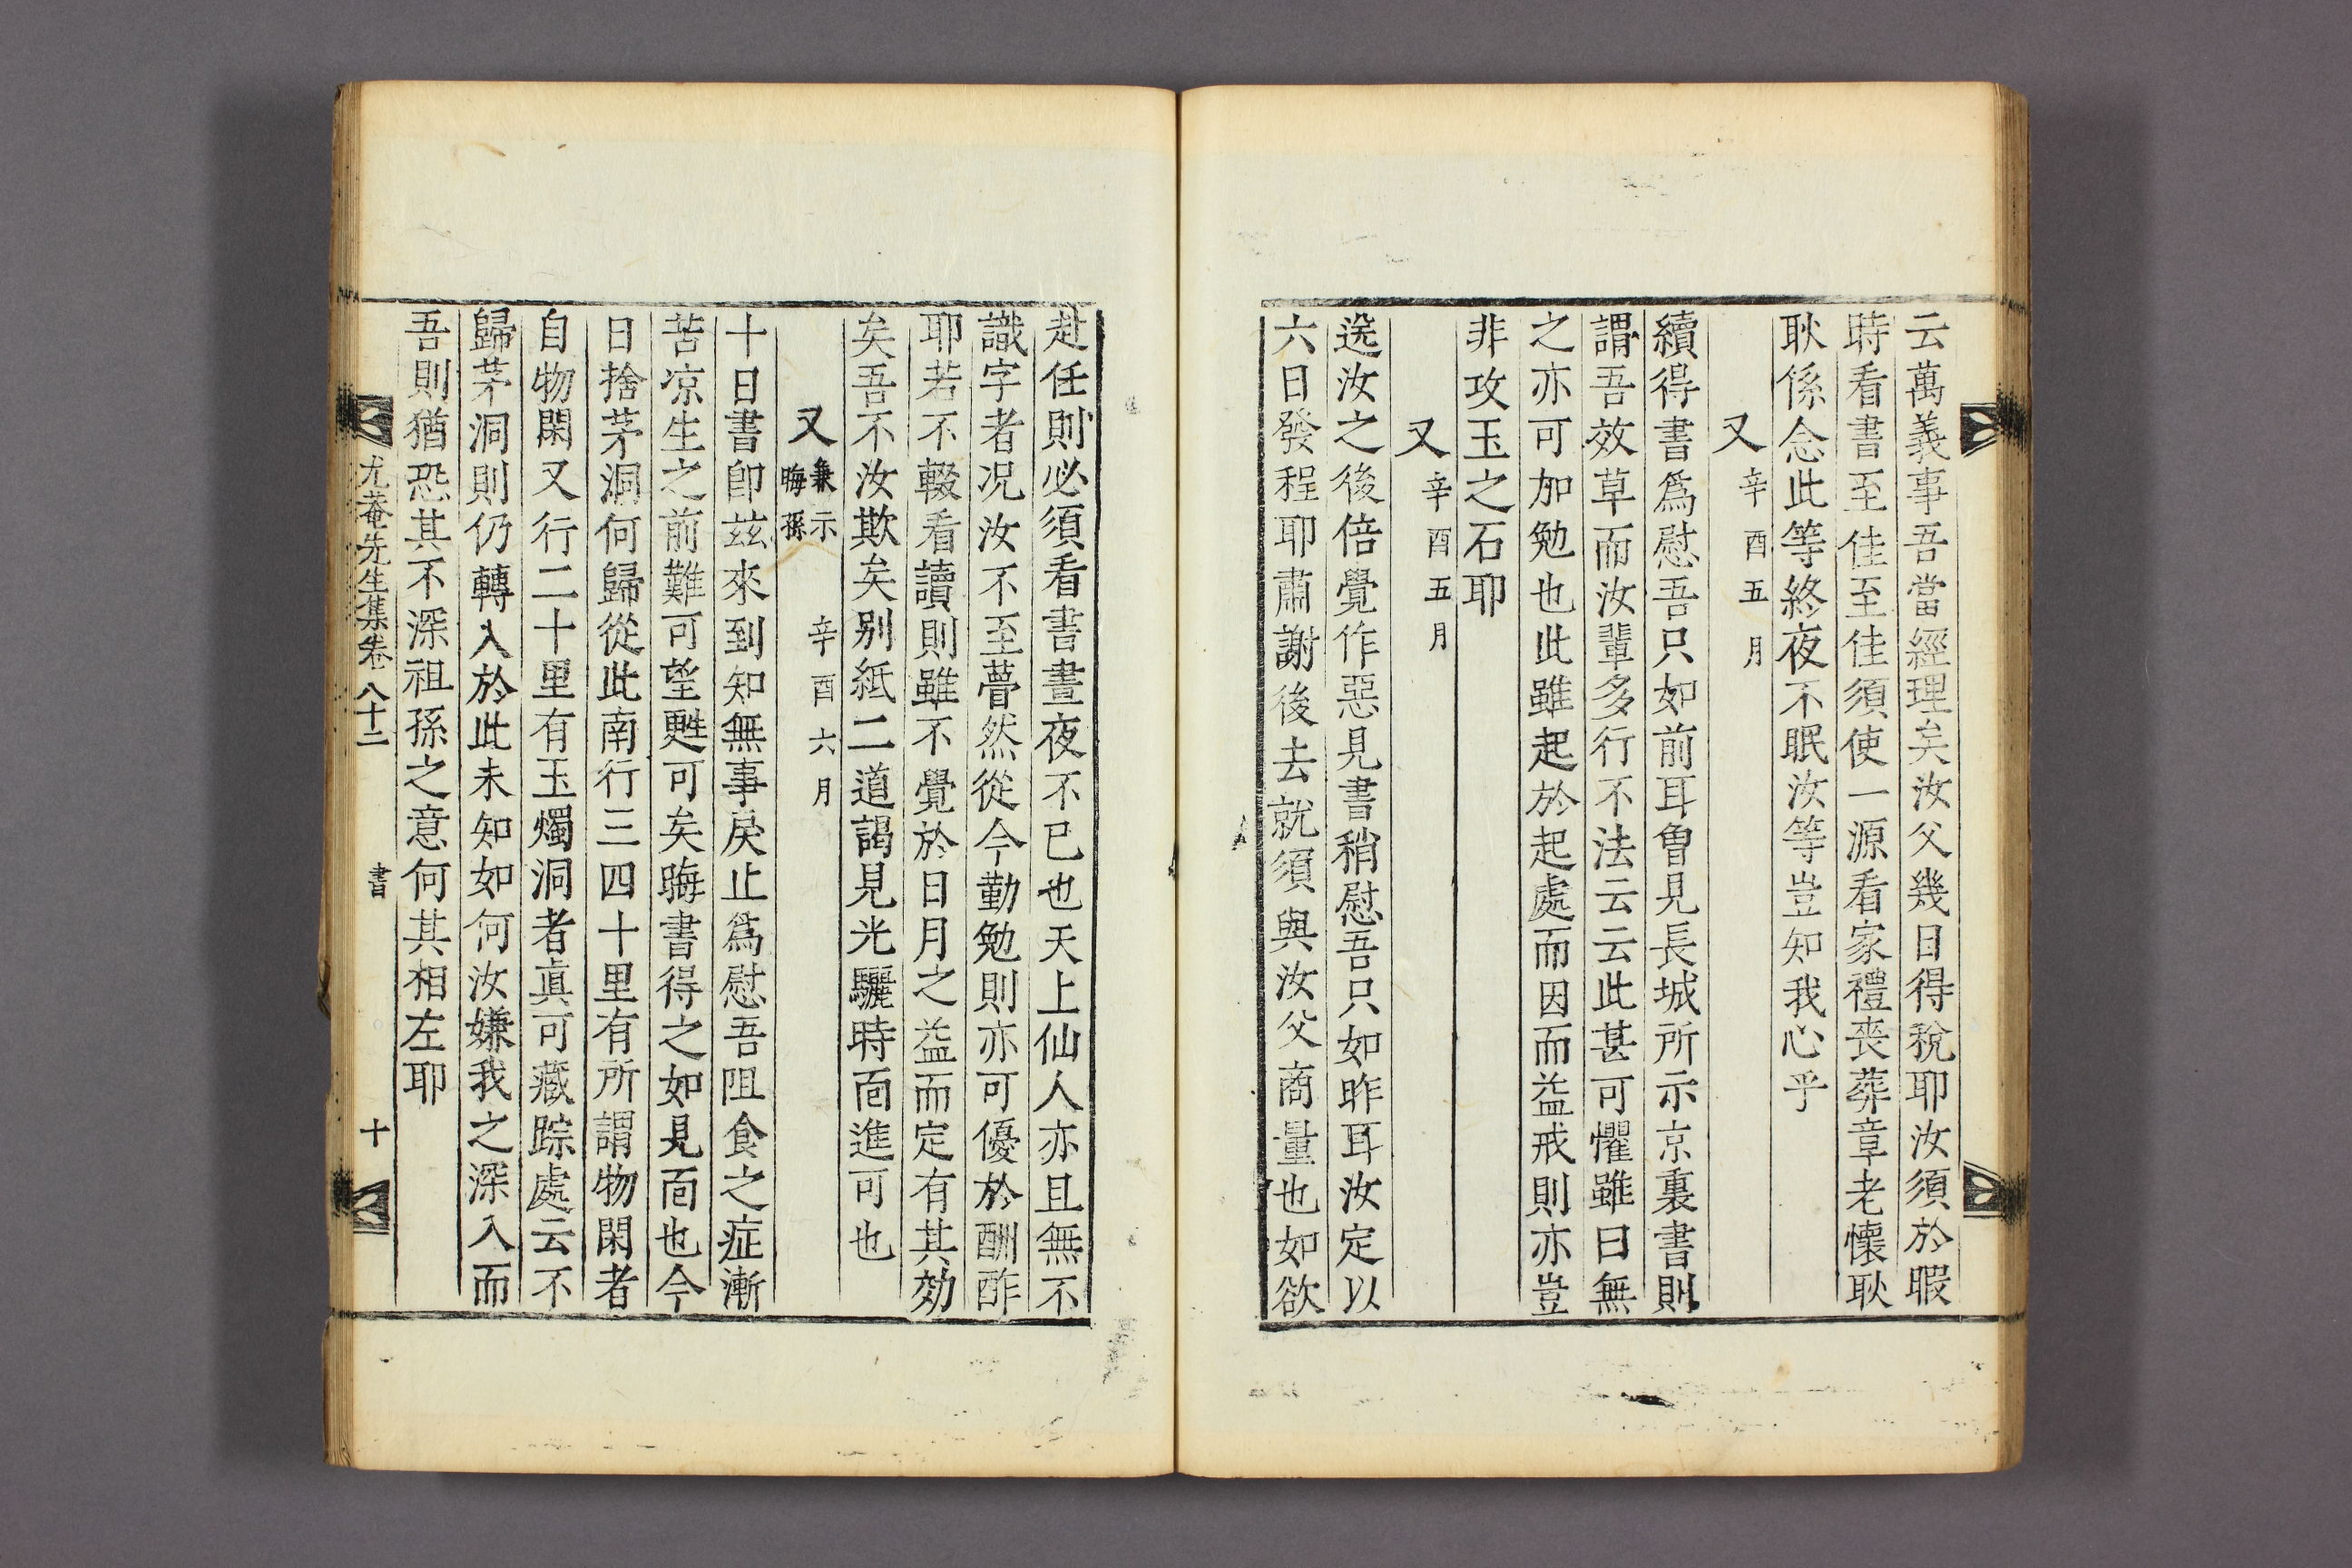 云萬義事吾當經理矣汝父幾日得稅耶汝須於暇
時看書至佳至佳須使一源看家禮喪葬章老懷耿
耿係念此等終夜不眠汝等豈知我心乎
又 辛酉五月
續得書爲慰吾只如前耳曾見長城所示京裏書則
謂吾效草而汝輩多行不法云云此甚可懼雖曰無
之亦可加勉也此雖起於起處而因而益戒則亦豈
非攻玉之石耶
又 辛酉五月
送汝之後倍覺作惡見書稍慰吾只如昨耳汝定以
六日發程耶肅謝後去就須與汝父商量也如欲
赴任則必須看書晝夜不已也天上仙人亦且無不
識字者况汝不至瞢然從今勤勉則亦可優於酬酢
耶若不輟看讀則雖不覺於日月之益而定有其効
矣吾不汝欺矣别紙二道謁見光驪時面進可也
又 兼示晦孫 辛酉六月
十日書卽玆來到知無事戾止爲慰吾阻食之症漸
苦凉生之前難可望甦可矣晦書得之如見面也今
日捨茅洞何歸從此南行三四十里有所謂物閑者
自物閑又行二十里有玉燭洞者眞可藏踪處云不
歸茅洞則仍轉入於此未知如何汝嫌我之深入而
吾則猶恐其不深祖孫之意何其相左耶
尤菴先生集卷八十二 書 十